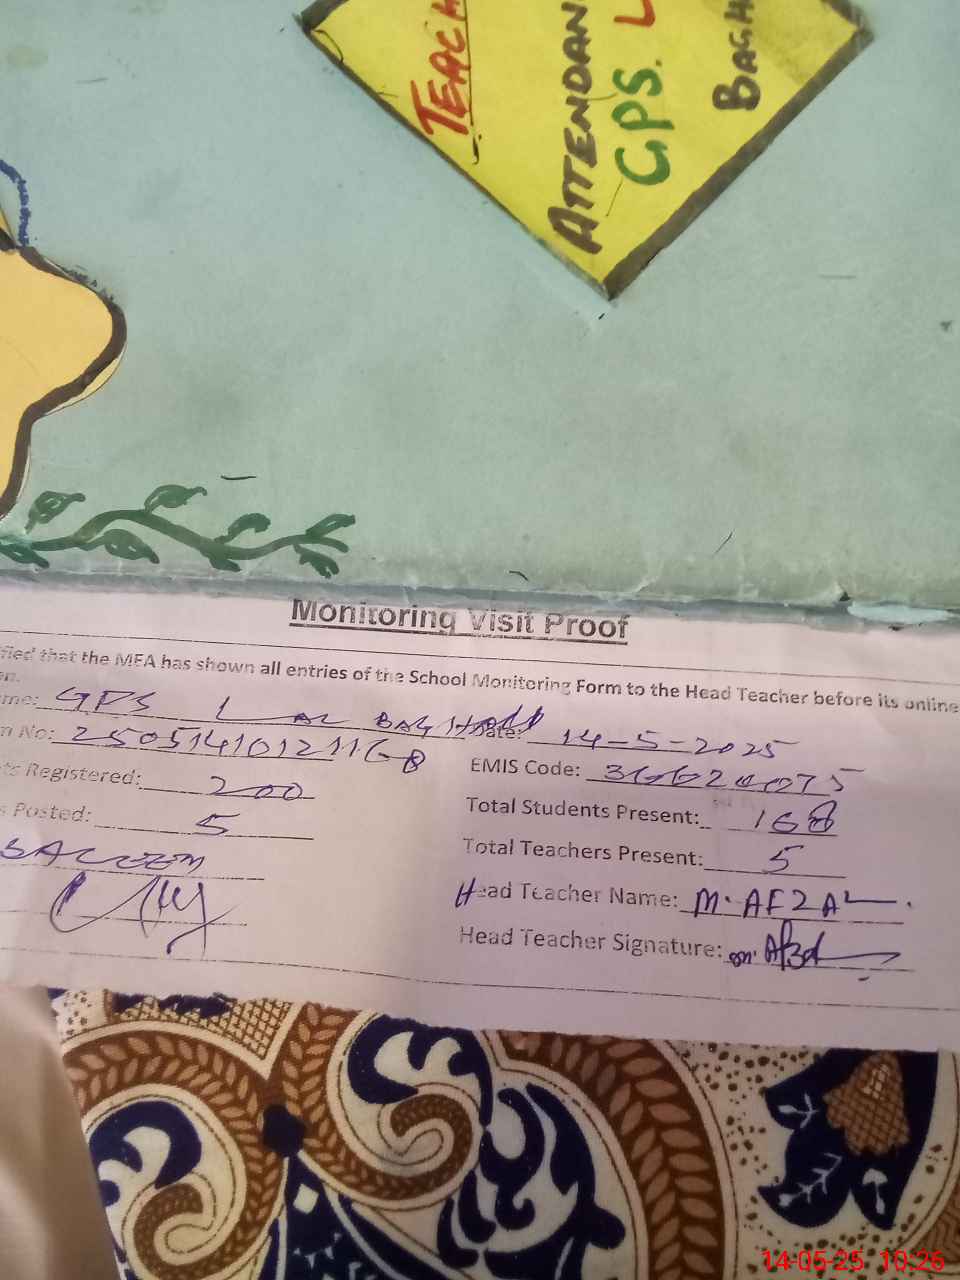 TEACH
ATTENDAN
GPS. L
BAGH
Monitoring Visit Proof
fied that the MEA has shown all entries of the School Monitoring Form to the Head Teacher before its online
on.
me: GPS LAL BAGH Date: 14-5-2025
n No: 25051410121168 EMIS Code:
ts Registered: 200 Total Students Present: 168
s Posted: 5 Total Teachers Present: 5
SALEEM Head Teacher Name: M. AFZAL
Head Teacher Signature: M. Afzal
14-05-25 10:26